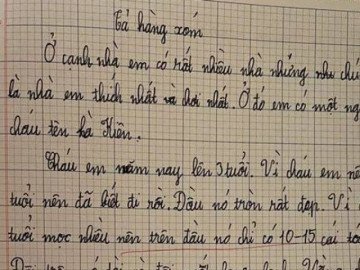 Tả hàng xóm
Ở cạnh nhà em có rất nhiều nhà nhưng nhà chú
là nhà em thích nhất và chơi nhất. Ở đó em có một ng
cháu tên hà Kiên.
Cháu em năm nay lên 3 tuổi. Vì cháu em nên
tuổi nên đã biết đi rồi. Đầu nó tròn rất đẹp. Vì
tuổi mọc nhiều nên trên đầu nó chỉ có 10-15 cái tó